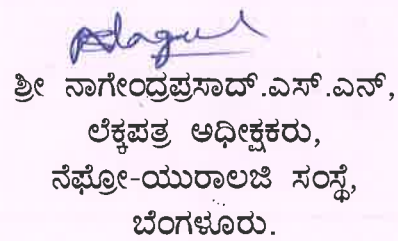 ಶ್ರೀ ನಾಗೇಂದ್ರಪ್ರಸಾದ್.ಎಸ್.ಎನ್,
ಲೆಕ್ಕಪತ್ರ ಅಧೀಕ್ಷಕರು,
ನೆಫ್ರೋ-ಯುರಾಲಜಿ ಸಂಸ್ಥೆ,
ಬೆಂಗಳೂರು.